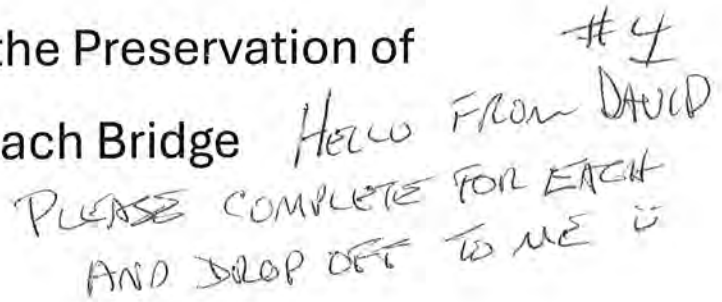 the Preservation of
#4
ach Bridge
HELLO FROM DAVID
PLEASE COMPLETE FOR EACH
AND DROP OFF TO ME ü